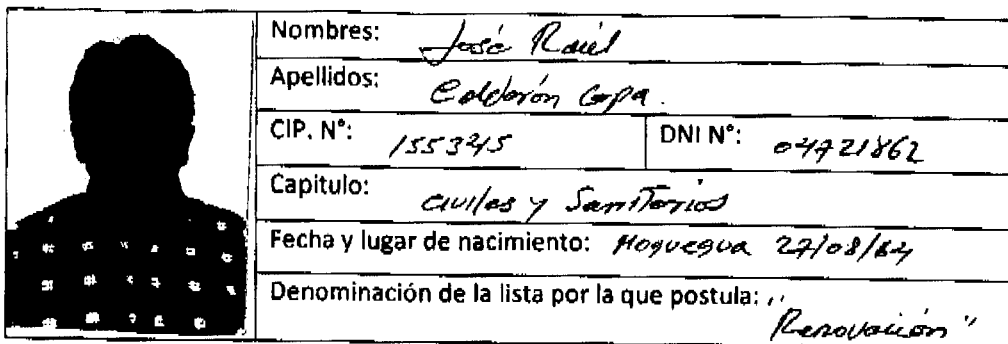 Nombres: José Raúl
Apellidos: Calderón Copa.
CIP. N°: 155345 DNI N°: 04721862
Capitulo: civiles y Sanitarios
Fecha y lugar de nacimiento: Moquegua 27/08/64
Denominación de la lista por la que postula: "Renovación"